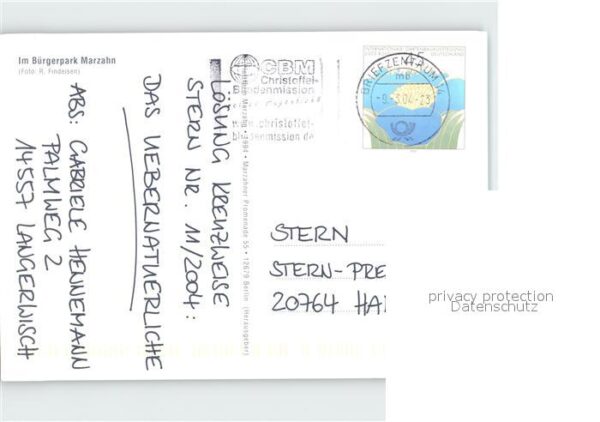 Im Bürgerpark Marzahn
(Foto: R. Findeisen)
CBM
Christoffel-
Blindenmission
www.christoffel-
blindenmission.de
BRIEFZENTRUM 14
mb
-9.-3.04-23
DEUTSCHLAND
LOSUNG KREUZWEISE
STERN NR. 11/2004:
DAS UEBERNATUERLICHE
ABS: GABRIELE HENNEMANN
PALMWEG 2
14557 LANGERWISCH
Marzahn 1994 • Marzahner Promenade 55 • 12679 Berlin (Herausgeber)
STERN
STERN-PRE
20764 HA
privacy protection
Datenschutz